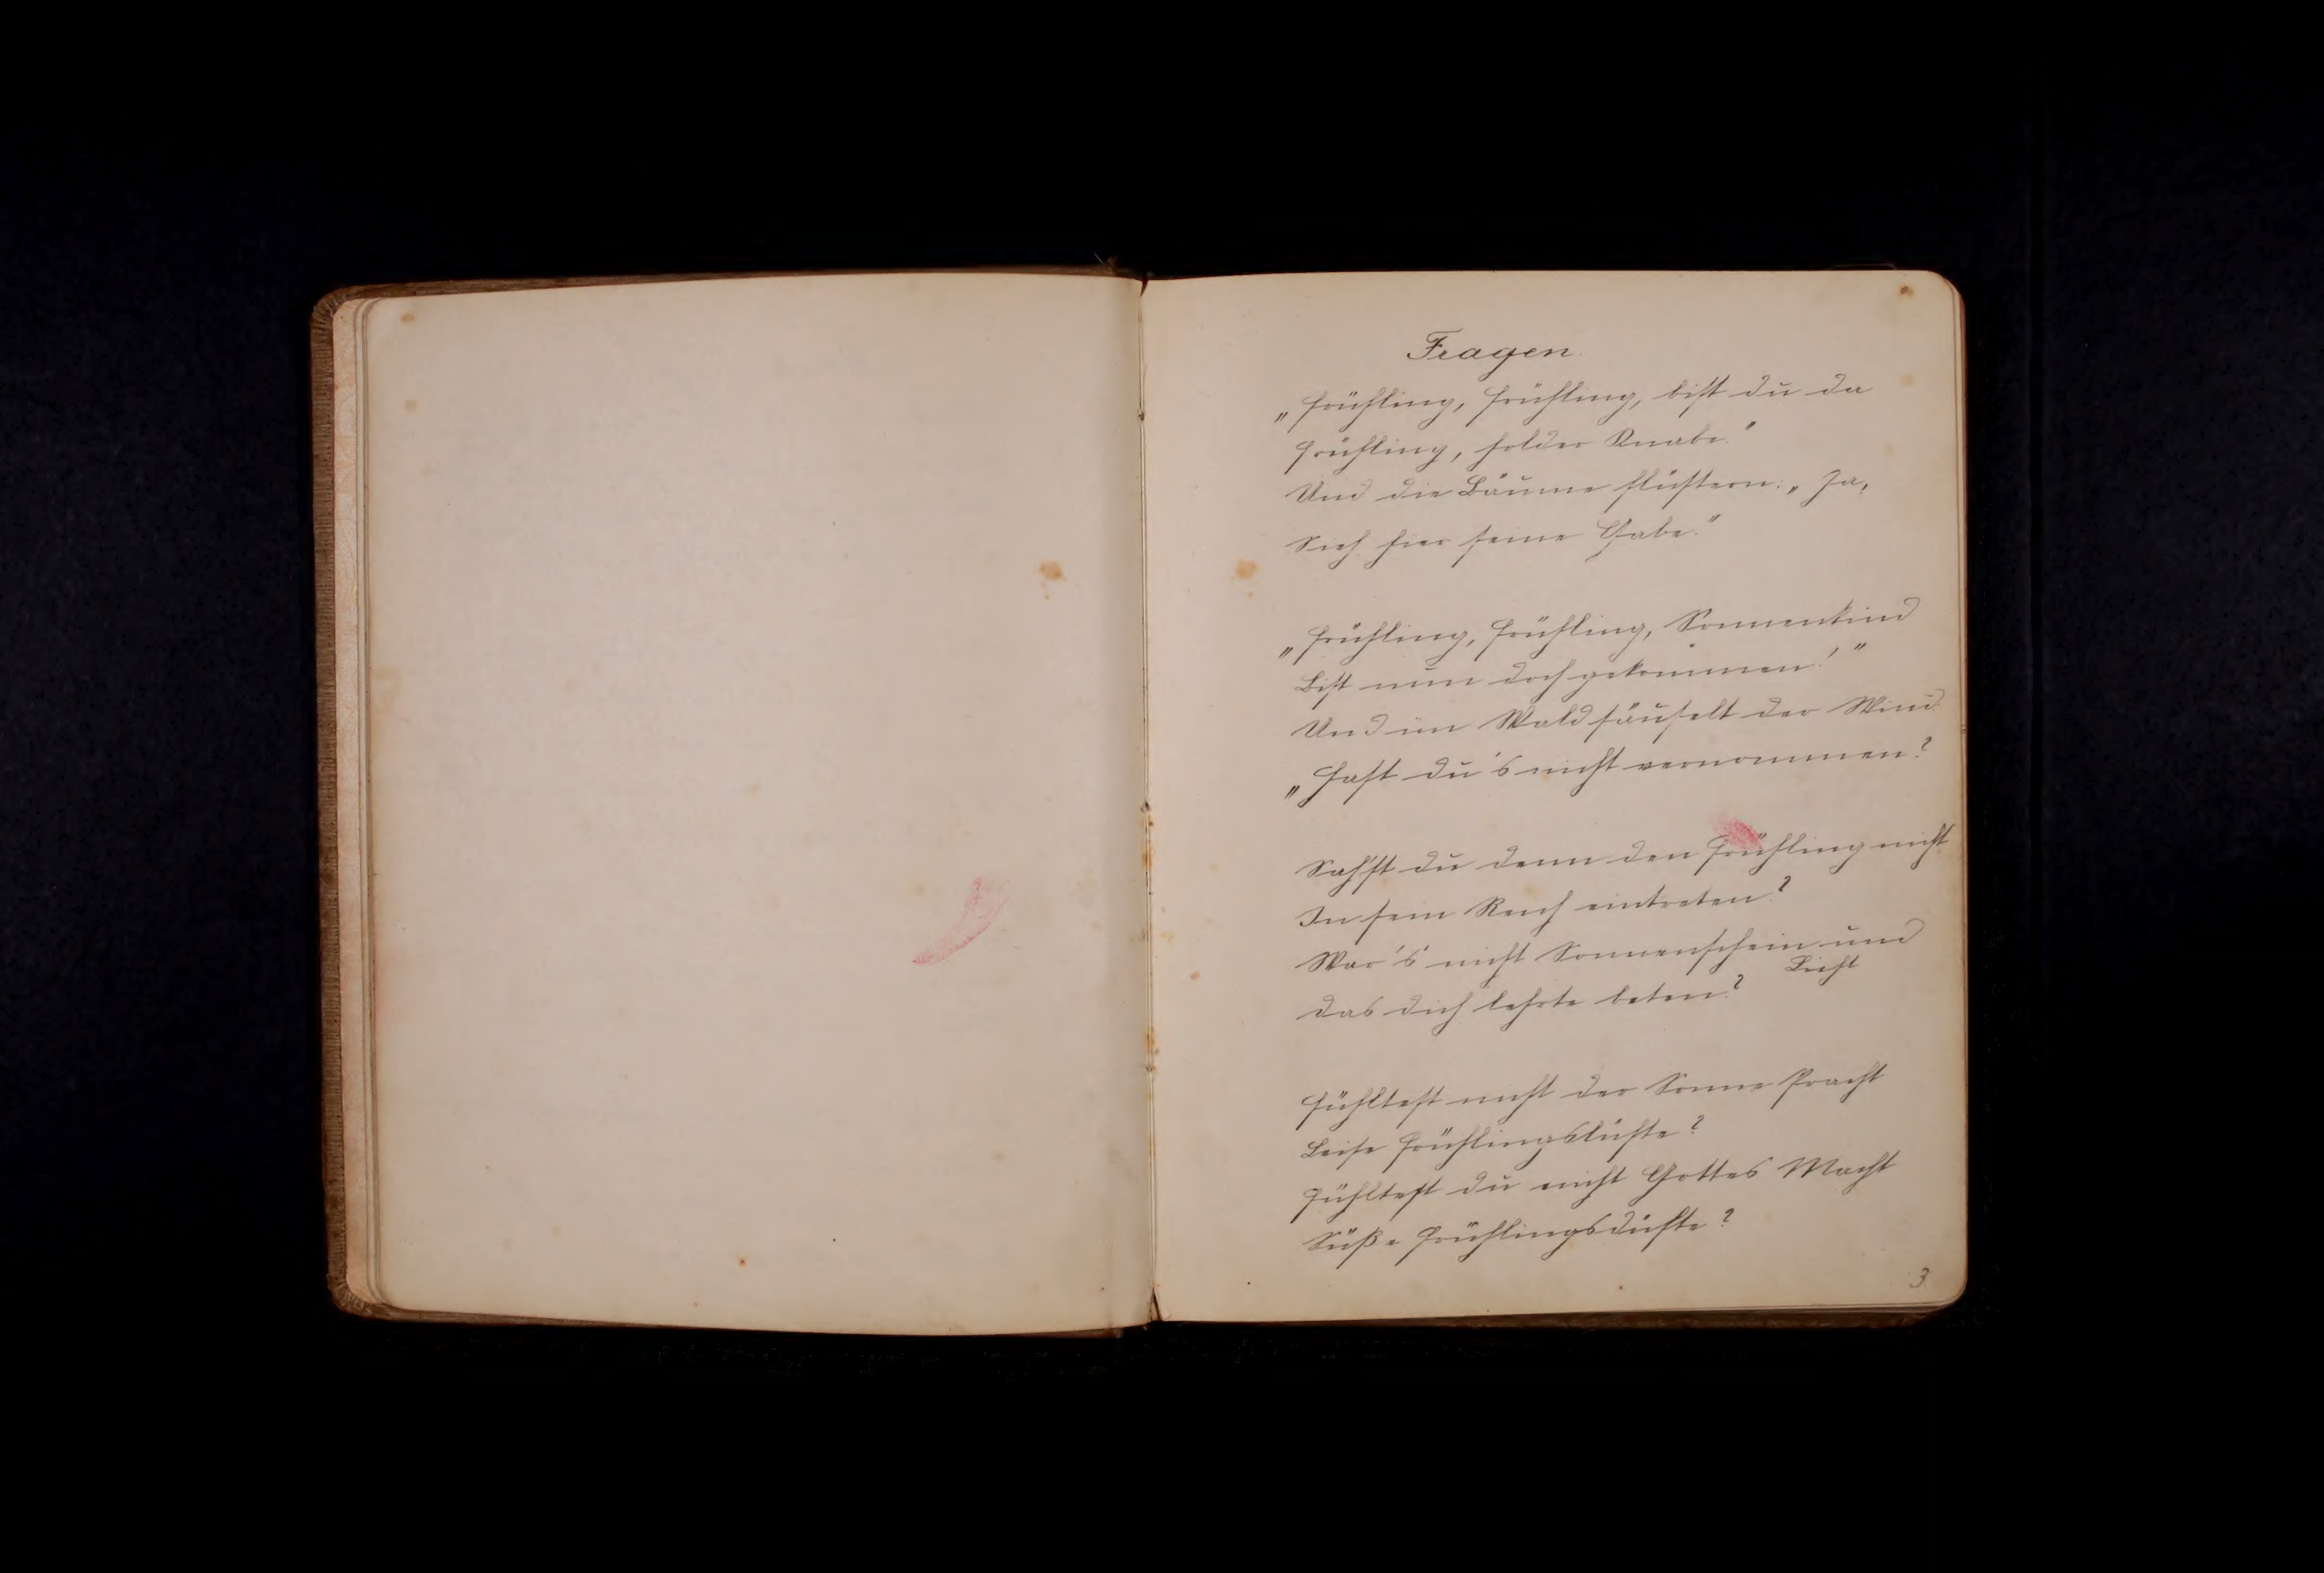 Fragen
„Frühling, Frühling, bist du da
Frühling, holder Knabe."
Und die Bäume flüstern: „Ja,
Sieh hier seine Gabe."
„Frühling, Frühling, Sonnenkind
Bist nun doch gekommen!"
Und im Wald säuselt der Wind
„Hast du's nicht vernommen?
Sah'st du denn den Frühling nicht
In sein Reich eintreten?
War's nicht Sonnenschein und
Licht
Das dich lehrte beten?
Fühltest nicht der Sonne Pracht
Leise Frühlingslüfte?
Fühltest du nicht Gottes Macht
Süße Frühlingsdüfte?
3